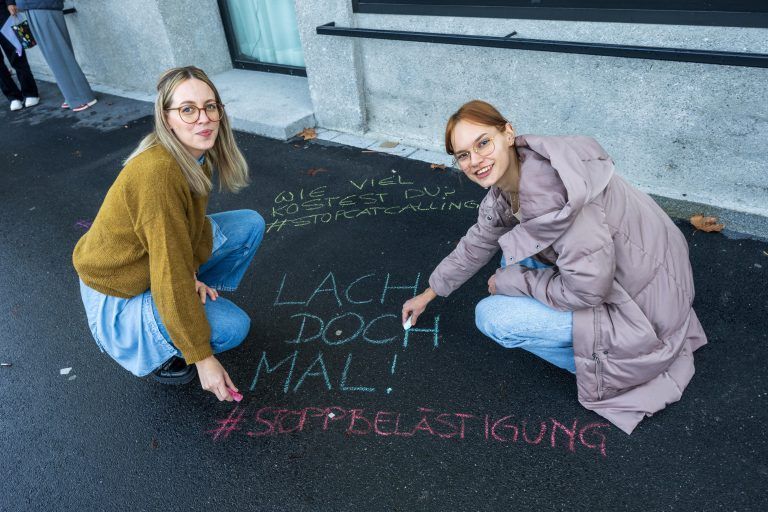 WIE VIEL
KOSTEST DU?
#STOPCATCALLING
LACH
DOCH
MAL!
#STOPPBELÄSTIGUNG